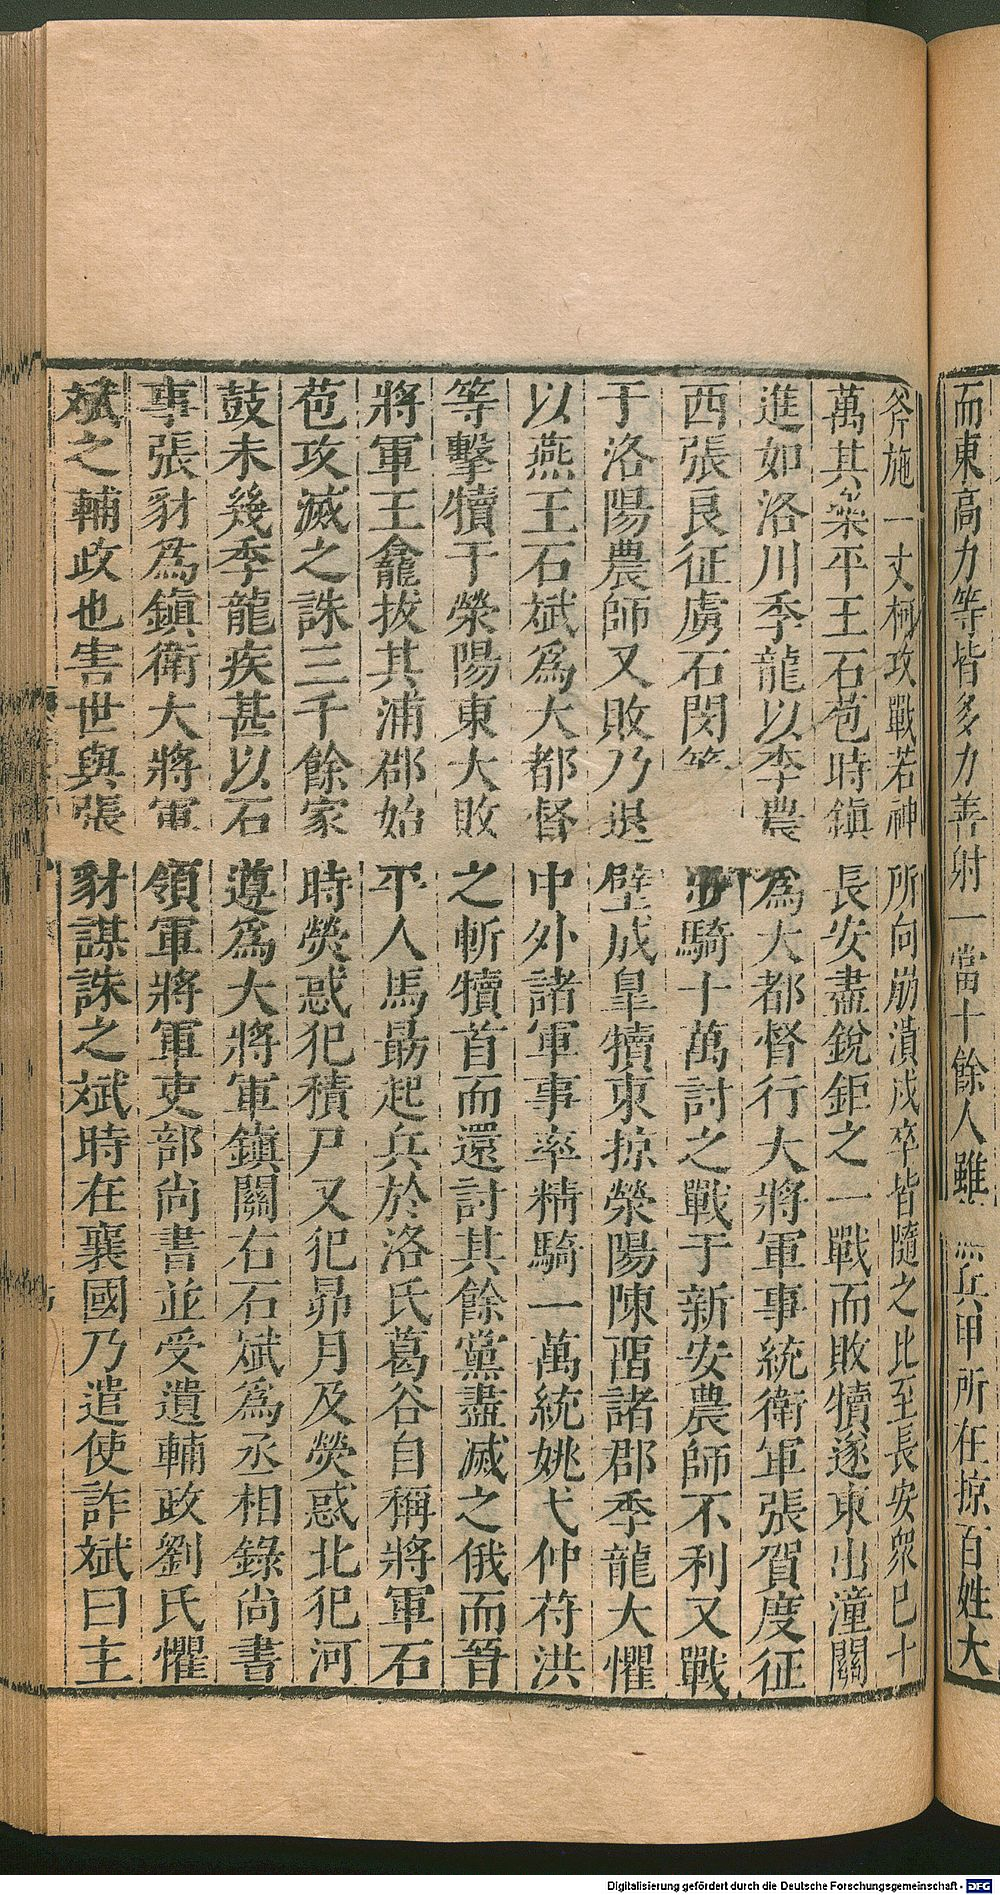 而東高力等皆多力善射一當十餘人雖 兵甲所在掠百姓大
斧施一丈柯攻戰若神所向崩潰戍卒皆隨之比至長安衆已十
萬其樂平王石苞時鎮長安盡銳距之一戰而敗犢遂東出潼關
進如洛川季龍以李農爲大都督行大將軍事統衛軍張賀度征
西張良征虜石閔等 步騎十萬討之戰于新安農師不利又戰
于洛陽農師又敗乃退壁成皐犢東掠滎陽陳畱諸郡季龍大懼
以燕王石斌爲大都督中外諸軍事率精騎一萬統姚弋仲苻洪
等擊犢于滎陽東大敗之斬犢首而還討其餘黨盡滅之俄而晉
將軍王龕拔其沛郡始平人馬勗起兵於洛氏葛谷自稱將軍石
苞攻滅之誅三千餘家時熒惑犯積尸又犯昴月及熒惑北犯河
鼓未幾季龍疾甚以石遵爲大將軍鎮關右石斌爲丞相錄尚書
事張豺爲鎮衛大將軍領軍將軍吏部尚書並受遺輔政劉氏懼
斌之輔政也害世與張豺謀誅之斌時在襄國乃遣使詐斌曰主
Digitalisierung gefördert durch die Deutsche Forschungsgemeinschaft - DFG